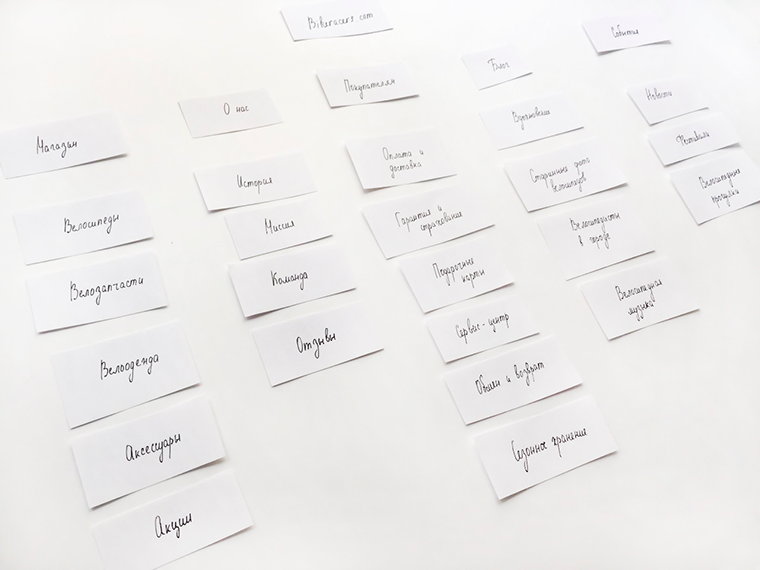 Магазин
Велосипеды
Велозапчасти
Велоодежда
Аксессуары
Акции
О нас
История
Миссия
Команда
Отзывы
Покупателям
Оплата и
доставка
Гарантия и
страхование
Подарочные
карты
Сервис-центр
Обмен и возврат
Сезонное хранение
Блог
Вдохновение
Старинные фото
велосипедов
Велосипедисты
в городе
Велосипедная
музыка
События
Новости
Фестивали
Велосипедные
прогулки